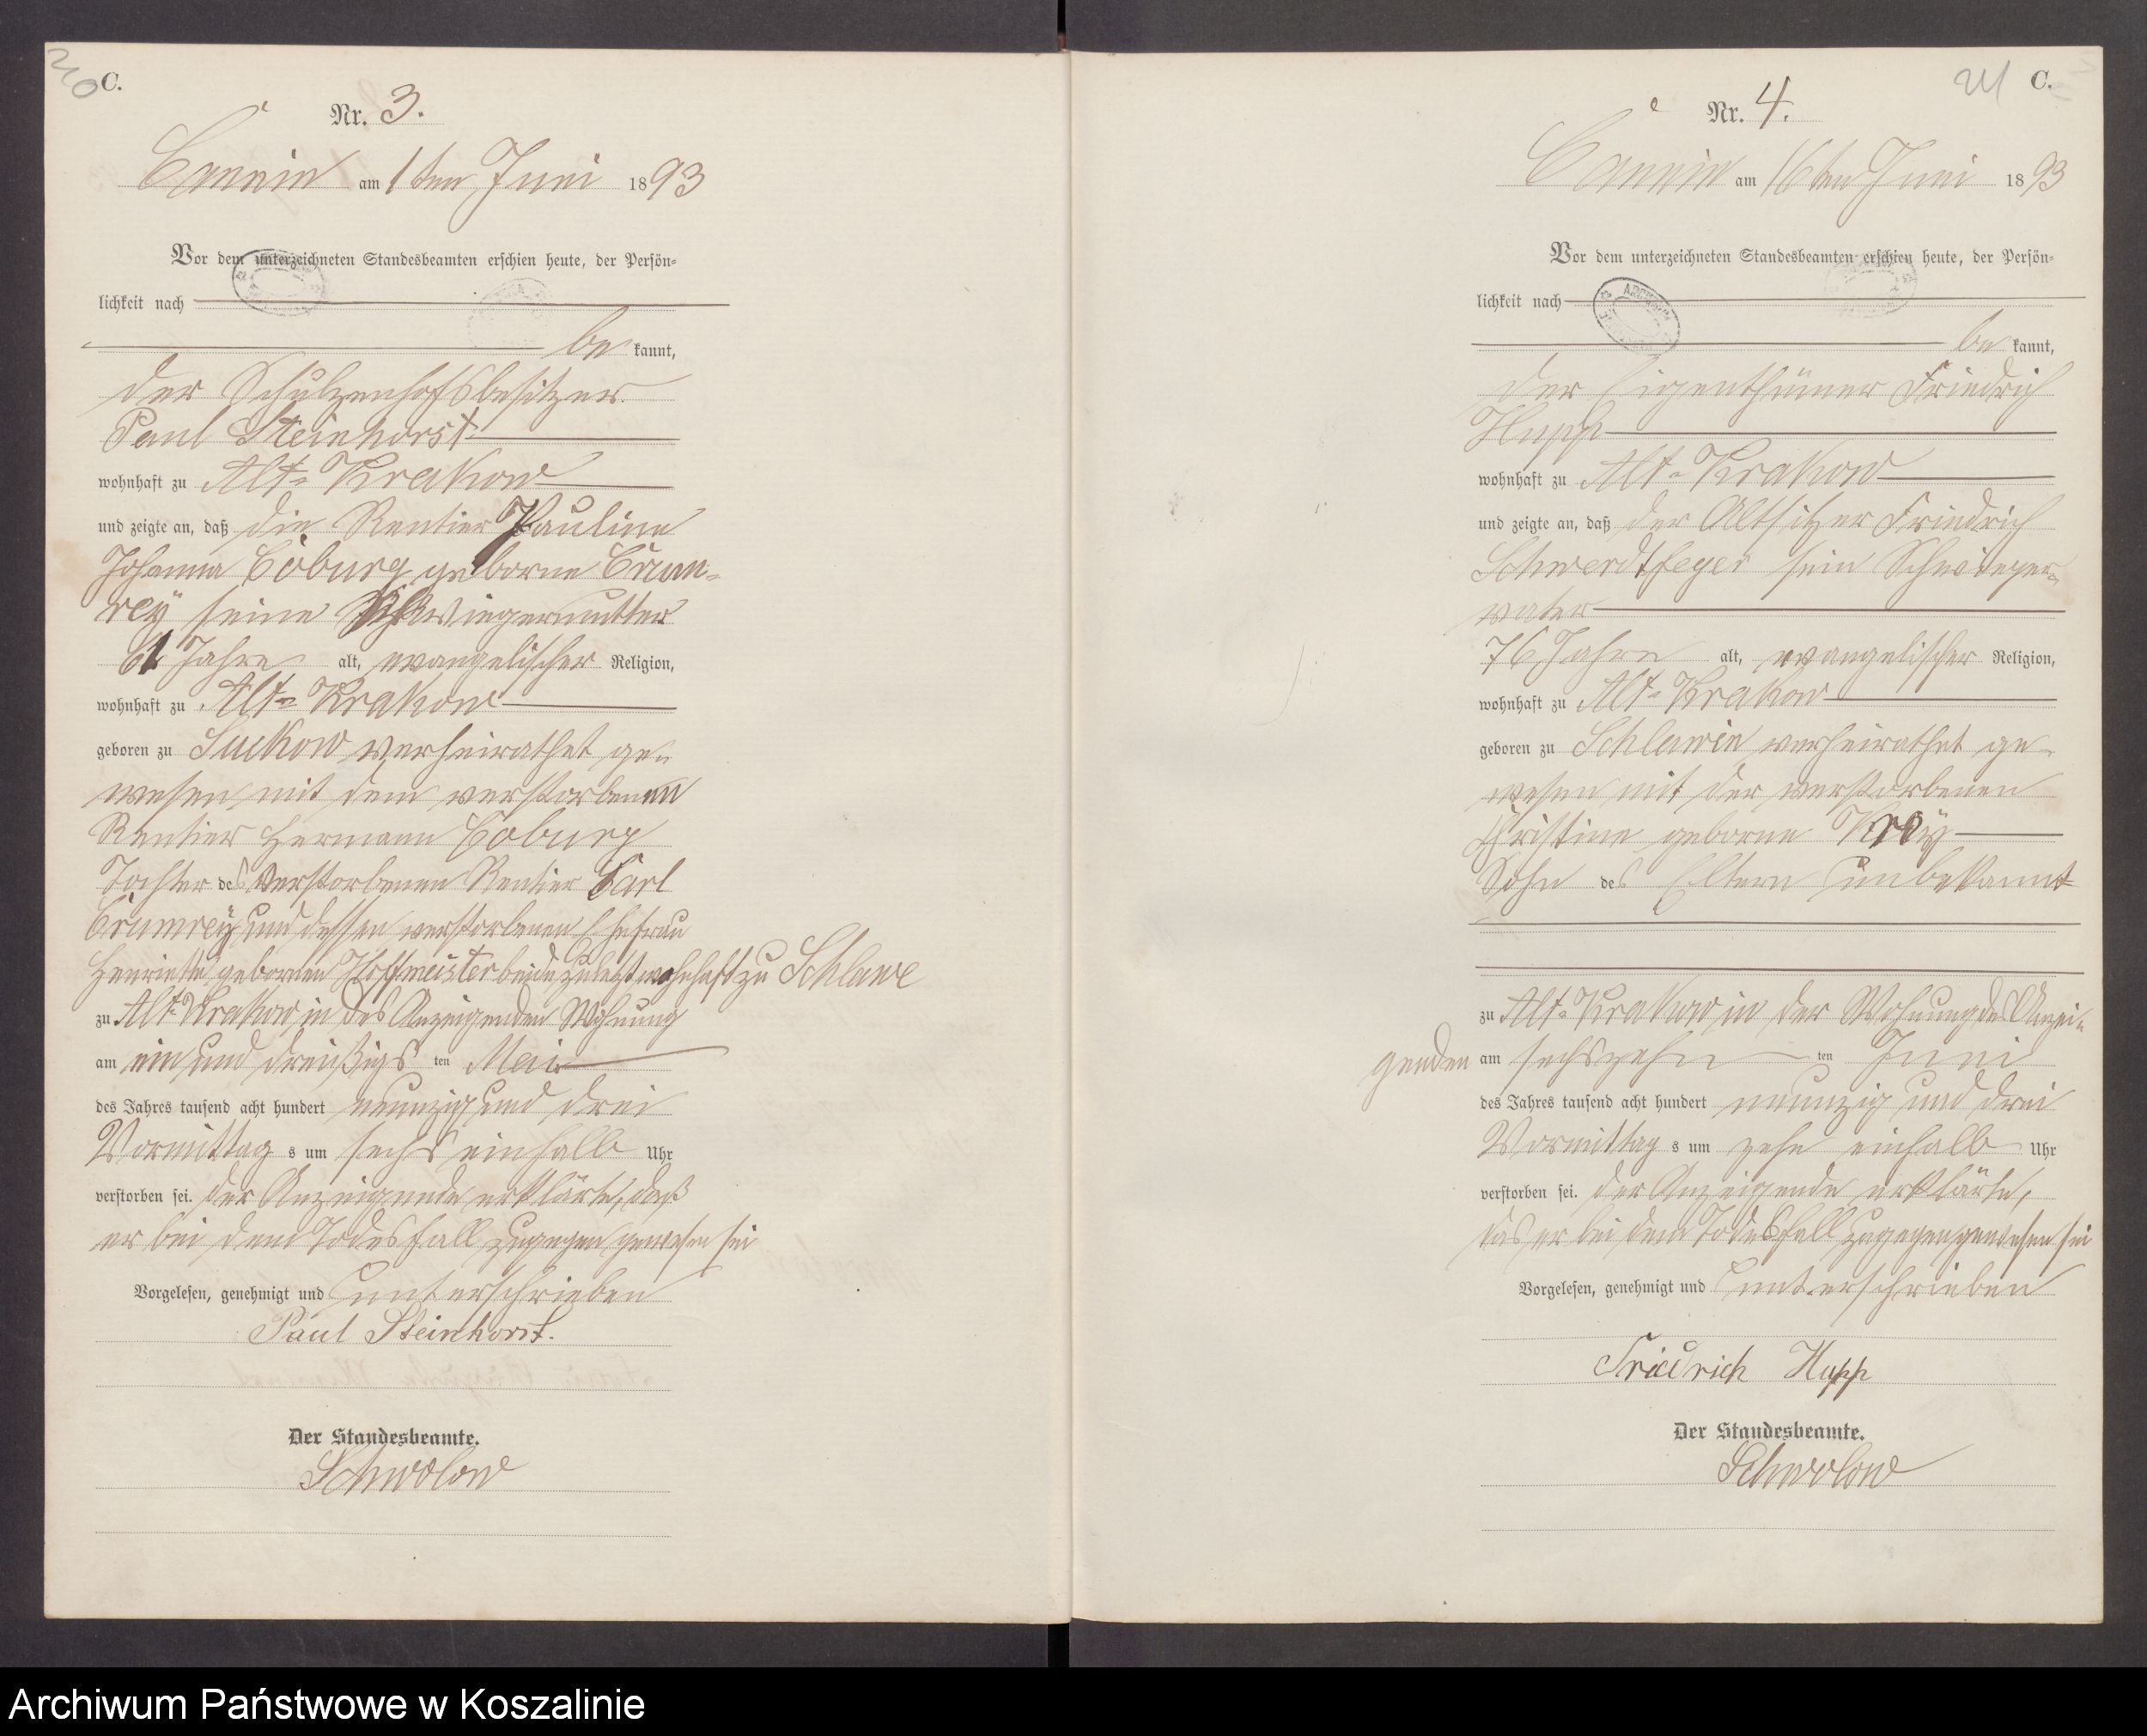 210
C.
Nr. 3.
Cannin am 1ten Juni 1893
Vor dem unterzeichneten Standesbeamten erschien heute, der Persön-
lichkeit nach
be kannt,
der Schulzenhofsbesitzer
Paul Steinhorst
wohnhaft zu Alt-Krakow
und zeigte an, daß die Rentier Pauline
Johanna Coburg geborne Crum-
rey seine Schwiegermutter
61 Jahre alt, evangelischer Religion,
wohnhaft zu Alt-Krakow
geboren zu Suckow verheirathet ge-
wesen mit dem verstorbenen
Rentier Hermann Coburg
Tochter des verstorbenen Rentier Carl
Crumrey und dessen verstorbenen Ehefrau
Henriette gebornen Hoffmeister beide zuletzt wohnhaft zu Schlawe
zu Alt-Krakow in des Anzeigenden Wohnung
am ein und dreißigs ten Mai
des Jahres tausend acht hundert neunzig und drei
Vormittag s um sechs einhalb Uhr
verstorben sei. der Anzeigende erklärte, daß
er bei dem Todesfall zugegen gewesen sei
Vorgelesen, genehmigt und unterschrieben
Paul Steinhorst.
Der Standesbeamte.
Schwolow
211
C.
Nr. 4.
Cannin am 16ten Juni 1893
Vor dem unterzeichneten Standesbeamten erschien heute, der Persön-
lichkeit nach
be kannt,
der Eigenthümer Friedrich
Hupp
wohnhaft zu Alt-Krakow
und zeigte an, daß der Altsitzer Friedrich
Schwerdtfeger sein Schwieger-
vater
76 Jahre alt, evangelischer Religion,
wohnhaft zu Alt-Krakow
geboren zu Schlawin verheirathet ge-
wesen mit der verstorbenen
Christine geborne Kroy
Sohn des Eltern unbekannt
zu Alt-Krakow in der Wohnung des Anzei-
genden am sechszehn ten Juni
des Jahres tausend acht hundert neunzig und drei
Vormittag s um zehn einhalb Uhr
verstorben sei. der Anzeigende erklärte,
das er bei dem Todesfall zugegen gewesen sei
Vorgelesen, genehmigt und unterschrieben
Friedrich Hupp
Der Standesbeamte.
Schwolow
Archiwum Państwowe w Koszalinie